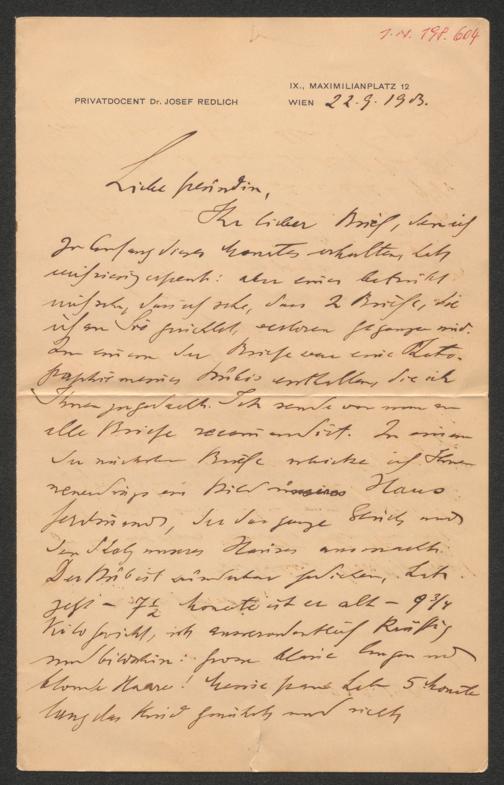 I. N. 198.604
IX., MAXIMILIANPLATZ 12
PRIVATDOCENT Dr. JOSEF REDLICH
WIEN 22.9.1903.
Liebe Freundin,
Ihr lieber Brief, den ich
zu Anfang dieses Monates erhalten, hat
mich riesig erfreut: aber eines betrübt
mich sehr, dass ich sehe, dass 2 Briefe, die
ich an Sie gerichtet, verloren gegangen sind.
In einem der Briefe war eine Photo-
graphie meines Bubis enthalten, die ich
Ihnen zugedacht. Ich sende von nun an
alle Briefe recommandirt. In einem
der nächsten Briefe schicke ich Ihnen
neuerdings ein Bild Hans
Ferdinands, der das ganze Glück und
den Stolz unseres Hauses ausmacht.
Der Bub ist wunderbar gediehen, hat
jetzt – 7 1/2 Monate ist er alt – 9 3/4
Kilo Gewicht, ist ausserordentlich kräftig
und bildschön: grosse blaue Augen und
blonde Haare! Meine Frau hat 5 Monate
lang das Kind genährt und sieht